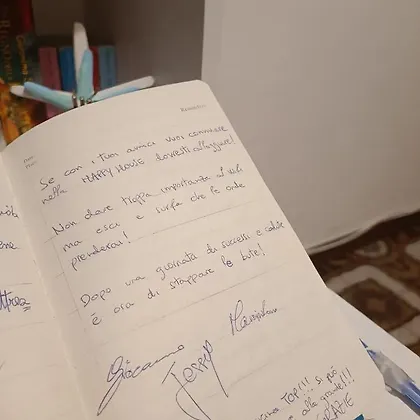 Se con i tuoi amici vuoi convivere
nella HAPPY HOUSE dovresti alloggiare!
Non dare troppa importanza al surf
ma esci e surfa che le onde
prenderai!
Dopo una giornata di successi e cadute
è ora di stappare le bire!
Giacomo
Jessy
TOP!!! si può
alla grande!!!
GRAZIE